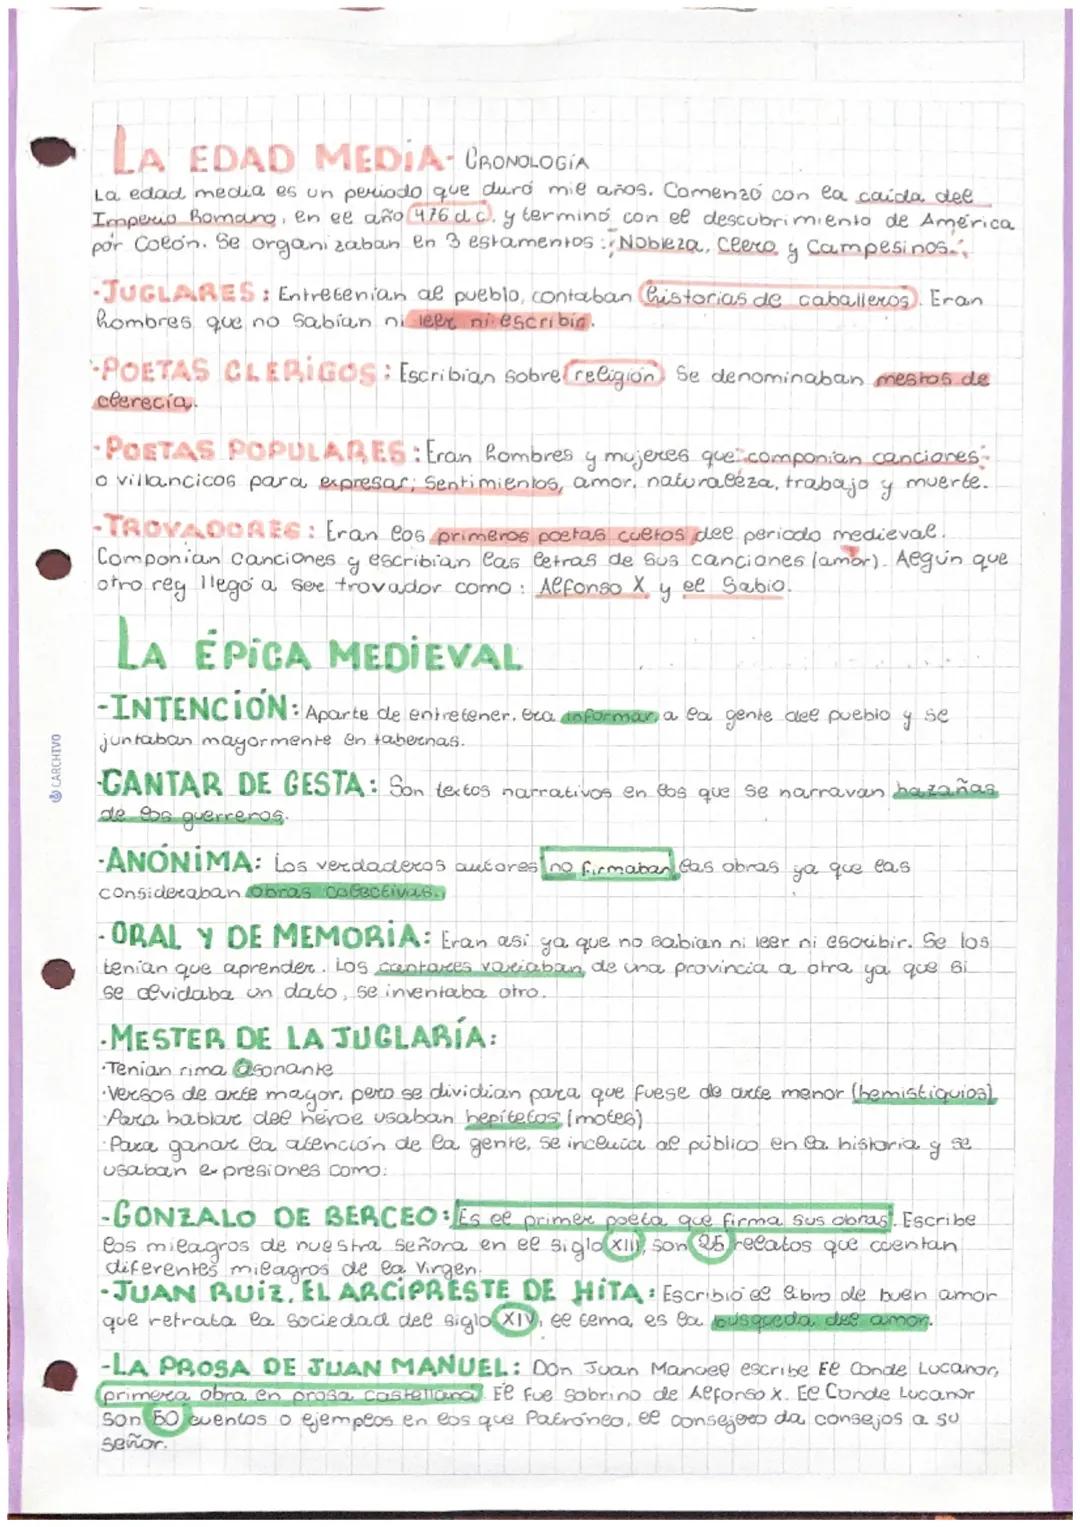 LA EDAD MEDIA- CRONOLOGÍA
La edad media es un periodo que duró mil años. Comenzó con la caída del
Imperio Romano, en el año 476 d.c. y terminó con el descubrimiento de América
por Colón. Se organizaban en 3 estamentos: Nobleza, Clero y Campesinos.
-JUGLARES: Entretenian al pueblo, contaban historias de caballeros. Eran
hombres que no sabían ni leer ni escribir.
-POETAS CLERIGOS: Escribian sobre religión. Se denominaban mestros de
clerecía.
-POETAS POPULARES: Eran hombres y mujeres que componian canciones
o villancicos para expresar; sentimientos, amor, naturaleza, trabajo y muerte.
-TROVADORES: Eran los primeros poetas cultos del periodo medieval.
Componian canciones y escribian las letras de sus canciones (amor). Aegún que
otro rey llegó a ser trovador como: Alfonso X y el Sabio.
LA ÉPICA MEDIEVAL
-INTENCIÓN: Aparte de entretener, era informar a la gente del pueblo y se
juntaban mayormente en tabernas.
-CANTAR DE GESTA: Son textos narrativos en los que se narravan hazañas
de los guerreros.
-ANÓNIMA: Los verdaderos autores no firmaban las obras ya que las
consideraban obras colectivas.
-ORAL Y DE MEMORIA: Eran asi ya que no sabian ni leer ni escribir. Se los
tenian que aprender. Los cantares variaban de una provincia a otra ya que si
se olvidaba un dato, se inventaba otro.
·MESTER DE LA JUGLARÍA:
·Tenian rima asonante
·Versos de arte mayor, pero se dividian para que fuese de arte menor (hemistiquios)
·Para hablar del héroe usaban hepitetos (motes)
·Para ganar la atención de la gente, se incluia al público en la historia y se
usaban expresiones como:
-GONZALO DE BERCEO: Es el primer poeta que firma sus obras. Escribe
los milagros de nuestra señora en el siglo XIII, son 25 relatos que cuentan
diferentes milagros de la Virgen.
-JUAN RUIZ, EL ARCIPRESTE DE HITA: Escribió el libro de buen amor
que retrata la sociedad del siglo XIV, el tema es la búsqueda del amor.
-LA PROSA DE JUAN MANUEL: Don Juan Manuel escribe El Conde Lucanor,
primera obra en prosa castellana. El fue sobrino de Alfonso X. El Conde Lucanor
son 50 cuentos o ejemplos en los que Patroneo, el consejero da consejos a su
señor.
CARCHIVO